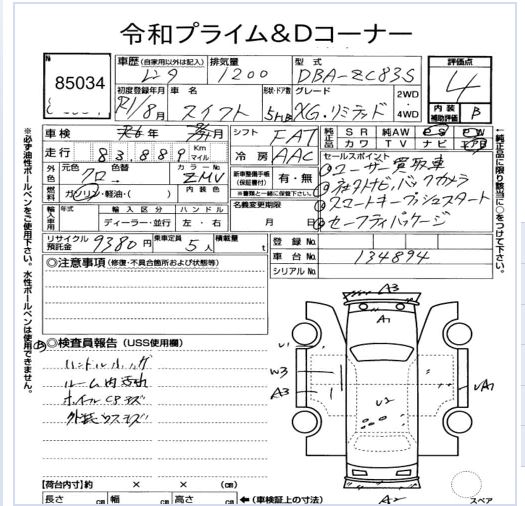 令和プライム&Dコーナー
85034
車歴(自家用以外は記入)
排気量
1200
型式
DBA-ZC83S
評価点
4
内装補助評価
B
初度登録年月
R1/8月
車名
スイフト
形状・ドア数
5HB
グレード
XG.リミテッド
2WD
4WD
車検
年
月
シフト
FAT
純正品
SR
純AW
カワ
TV
ナビ
走行
83,889
Km
マイル
冷房
AAC
セールスポイント
①ユーザー買取車
②社外ナビ、バックカメラ
③スマートキープッシュスタート
④セーフティパッケージ
外色
元色
クロ
→
カラーNo.
ZMV
新車整備手帳(保証書付)
有・無
※書類と一緒に保管下さい。
燃料
ガソリン・軽油・( )
内装色
名義変更期限
月 日
輸入車用
年式
輸入区分
ハンドル
ディーラー・並行
左・右
リサイクル預託金
9380円
乗車定員
5人
積載量
t
登録No.
車台No.
134894
シリアルNo.
◎注意事項(修復・不具合箇所および状態等)
◎検査員報告(USS使用欄)
ルーム内汚れ
ホイールCPキズ
外装小キズ
A3
A1
U1
W3
A3
U2
A2
スペア
【荷台内寸】約 × × (cm)
長さ cm 幅 cm 高さ cm ←(車検証上の寸法)
※必ず油性ボールペンをご使用下さい。水性ボールペンは使用できません。
←純正品に限り該当に○をつけて下さい。